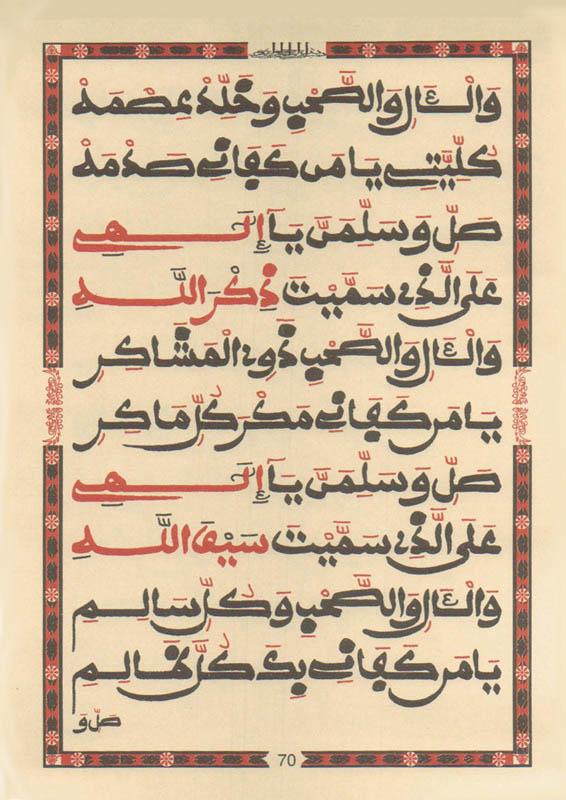 وَالْـَٔالِ وَالصَّحْبِ وَخَلِّدْ عِصْمَهْ
كُلِّيَّتِي يَا مَن كَفَانِي صَدْمَهْ
صَلِّ وَسَلِّمَنَّ يَآ إِلَـٰهِي
عَلَى الَّذِي سَمَّيْتَ ذِكْرَ اللَّهِ
وَالْـَٔالِ وَالصَّحْبِ ذَوِي الْمَشَاكِرِ
يَا مَن كَفَانِي مَكْرَ كُلِّ مَاكِرِ
صَلِّ وَسَلِّمَنَّ يَآ إِلَـٰهِي
عَلَى الَّذِي سَمَّيْتَ سَيْفَ اللَّهِ
وَالْـَٔالِ وَالصَّحْبِ وَكُلِّ سَالِمِ
يَا مَن كَفَانِي بِكَ كُلَّ ظَالِمِ
صَلِّ وَ
70